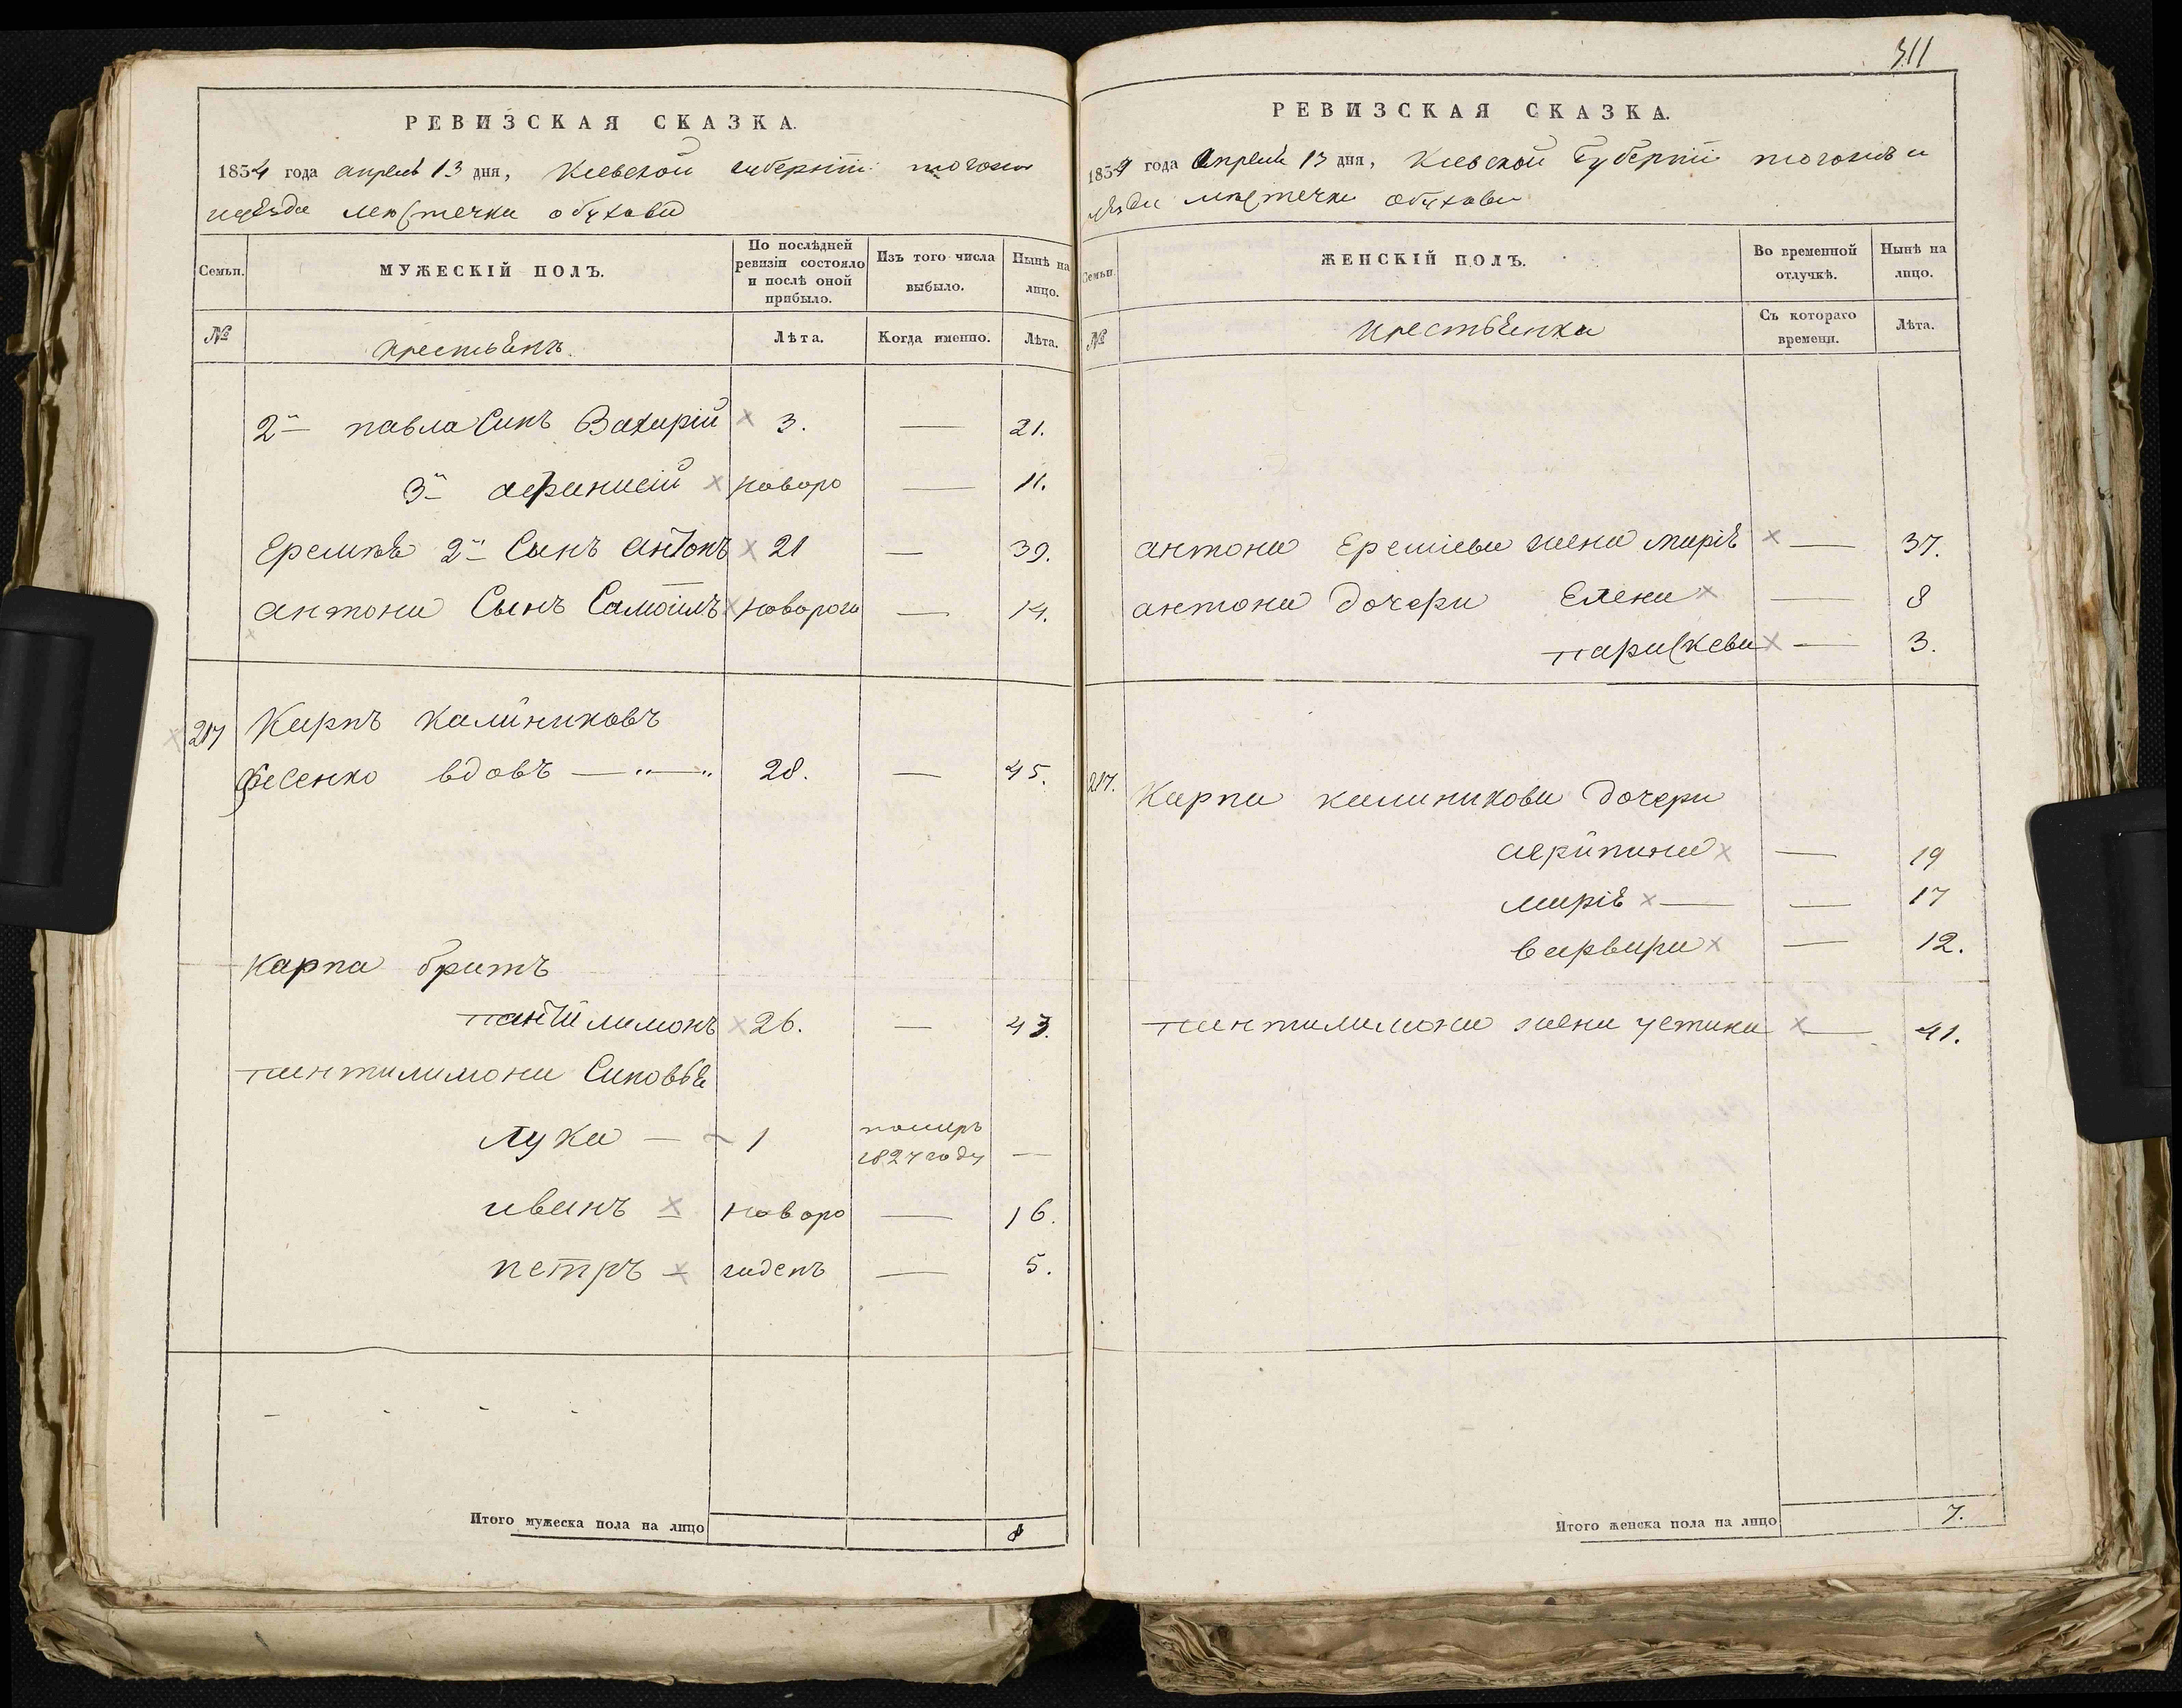 311
РЕВИЗСКАЯ СКАЗКА.
1854 года апреля 13 дня, Киевской губернiи тогожъ
уезда местечка обухова
Семьи. МУЖЕСКІЙ ПОЛЪ. По послѣдней ревизіи состояло и послѣ оной прибыло. Изъ того числа выбыло. Нынѣ на лицо.
№ крестьянъ. Лѣта. Когда именно. Лѣта.
2й павла Синъ Захарiй 3. — 21.
3й афанисiй новоро — 11.
Еремѣя 2й Сынъ антонъ 21 — 39.
антона Сынъ Самоилъ новорож — 14.
217 Карпъ калиниковъ
фесенко вдовъ — 28. — 45.
Карпа братъ
пантилимонъ 26. — 43.
пантилимона Синовья
лука — 1 помиръ 1827 году —
иванъ новоро — 16.
петръ жденъ — 5.
Итого мужеска пола на лицо 8
РЕВИЗСКАЯ СКАЗКА.
1854 года апреля 13 дня, Киевской Губернiи тогожъ у
езда местечка обухова
Семьи. ЖЕНСКІЙ ПОЛЪ. Во временной отлучкѣ. Нынѣ на лицо.
№ крестьянка Съ котораго времени. Лѣта.
антона Еремiева жена марiя — 37.
антона дочери Елена — 8
параскева — 3.
217. Карпа калиникова дочери
агрипина — 19
марiя — — 17
варвара — 12.
пантилимона жена устина — 41.
Итого женска пола на лицо 7.